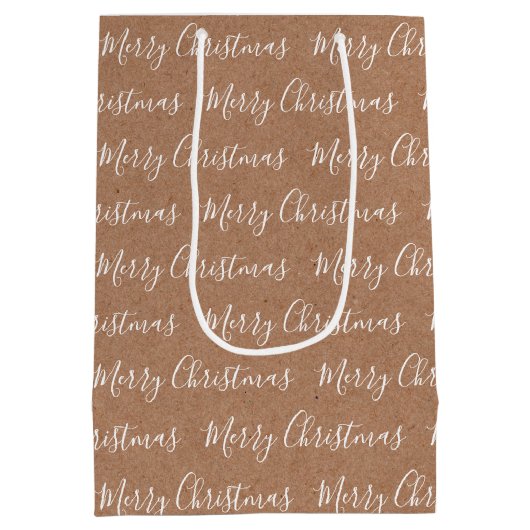 Merry Christmas Merry Christmas
ristmas Merry Christmas Me
Merry Christmas Merry Christmas
ristmas Merry Christmas Me
Merry Christmas Merry Christmas
ristmas Merry Christmas Me
Merry Christmas Merry Christmas
ristmas Merry Christmas Me
Merry Christmas Merry Christmas